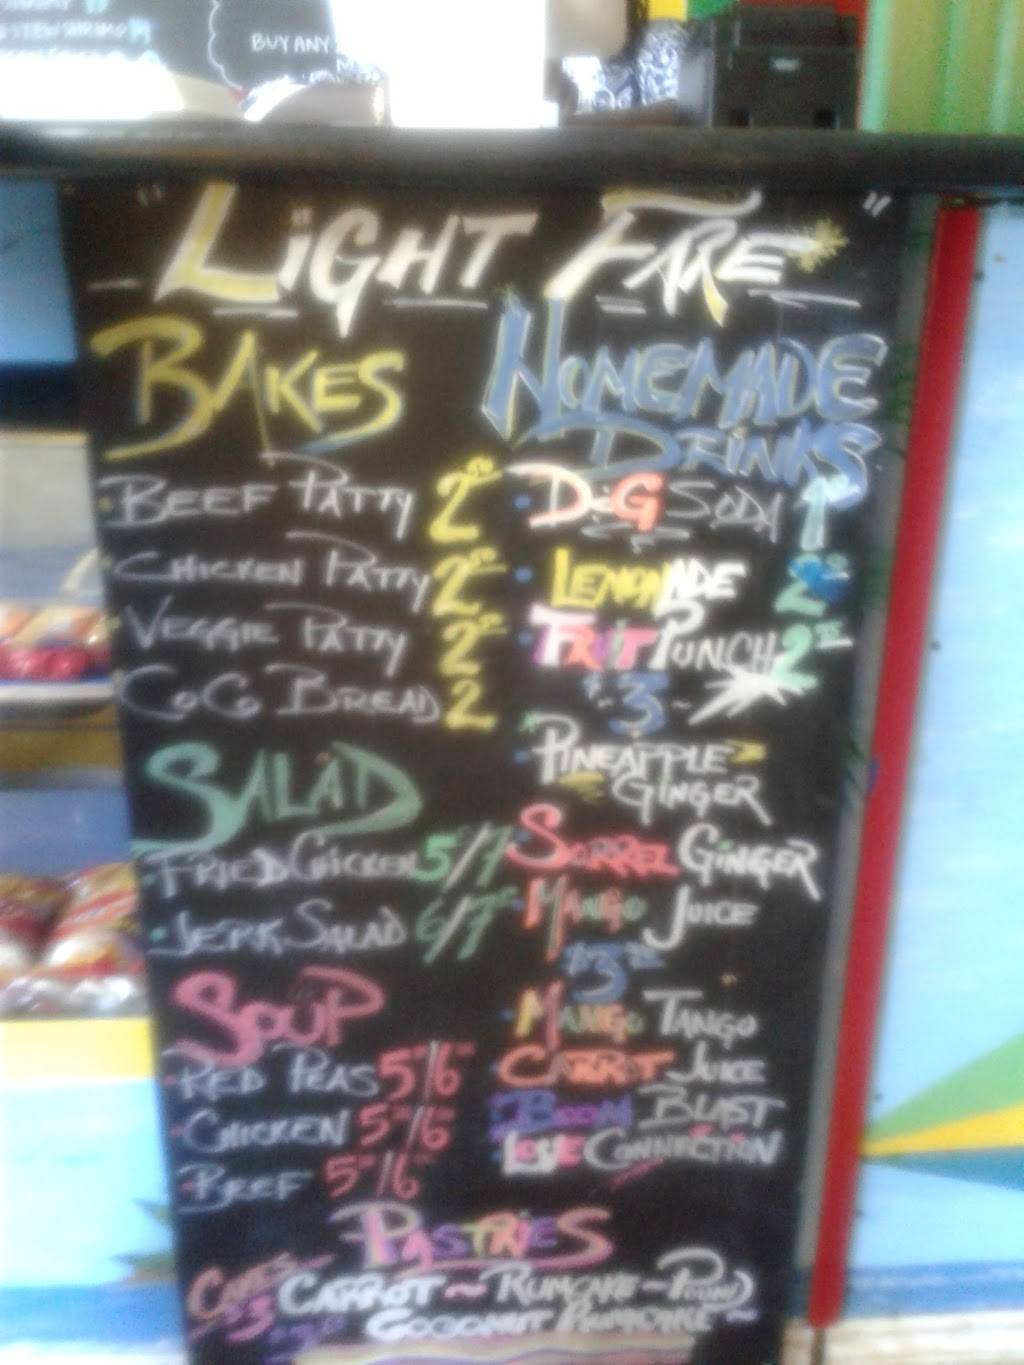 BUY ANY
"LiGHT FARE"
BAKES
BEEF PATTY 2
CHICKEN PATTY 2
VEGGIE PATTY 2
COCO BREAD 2
SALAD
FRIED CHICKEN 5/7
JERK SALAD 6/7
SOUP
RED PEAS 5/6
CHICKEN 5/6
BEEF 5/6
HOMEMADE
DRiNKS
D&G SODA 1
LEMONADE 2
FRUIT PUNCH 2
3
PINEAPPLE
GINGER
SORREL GINGER
MANGO JUICE
$3
MANGO TANGO
CARROT JUICE
BOOM BLAST
LOVE CONNECTION
PASTRiES
CAKES CARROT ~ RUMCAKE ~ POUND
$3 COCONUT RUMCAKE ~